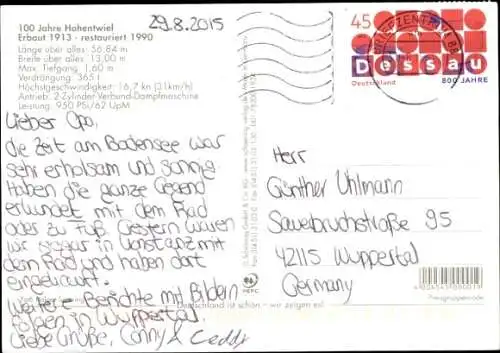 100 Jahre Hohentwiel
Erbaut 1913 - restauriert 1990
Länge über alles: 56,84 m
Breite über alles: 13,00 m
Max. Tiefgang: 1,60 m
Verdrängung: 365 t
Höchstgeschwindigkeit: 16,7 kn (31km/h)
Antrieb: 2-Zylinder-Verbund-Dampfmaschine
Leistung: 950 PSi/62 UpM
29.8.2015
45
Dessau
Deutschland
800 JAHRE
Lieber Opa,
die Zeit am Bodensee war
sehr erholsam und sonnig.
Haben die ganze Gegend
erkundet mit dem Rad
oder zu Fuß. Gestern waren
wir sogar in Konstanz mit
dem Rad und haben dort
eingekauft.
Weitere Berichte mit Bildern
folgen in Wuppertal.
Liebe Grüße, Conny & Ceddy
Herr
Günther Uhlmann
Sauerbruchstraße 95
42115 Wuppertal
Germany
PEFC
Deutschland ist schön – wir zeigen es!
Preisgruppencode